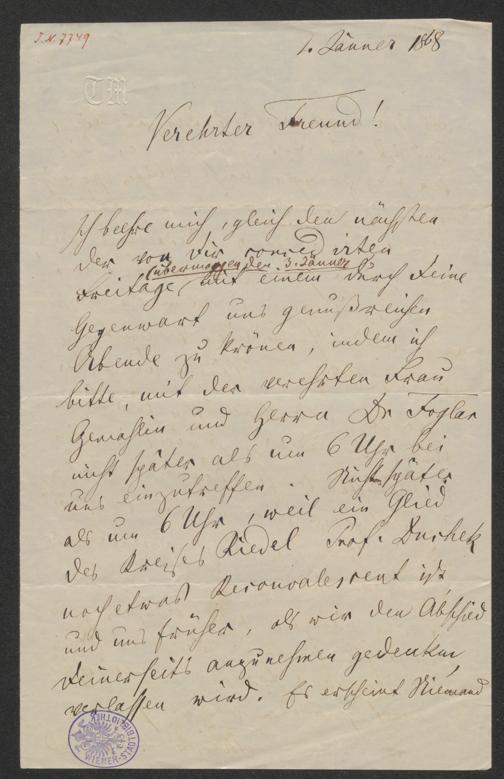 J.N. 7749
1. Jänner 1868
TM
Verehrter Freund!
Ich beehre mich, gleich den nächsten
der von Dir
(übermorgen den 3. Jänner)
Freitage mit einem durch Deine
Gegenwart uns genußreichen
Abende zu krönen, indem ich
bitte, mit der verehrten Frau
Gemahlin und Herrn Dr Foglar
nicht später als um 6 Uhr bei
uns einzutreffen. Nicht später
als um 6 Uhr, weil ein Glied
des Kreises Riedel Prof. Duchek
noch etwas Reconvalescent ist
und uns früher, als wir den Abschied
Deinerseits anzunehmen gedenken,
verlassen wird. Es erscheint Niemand
WIENER-STADTBIBLIOTHEK